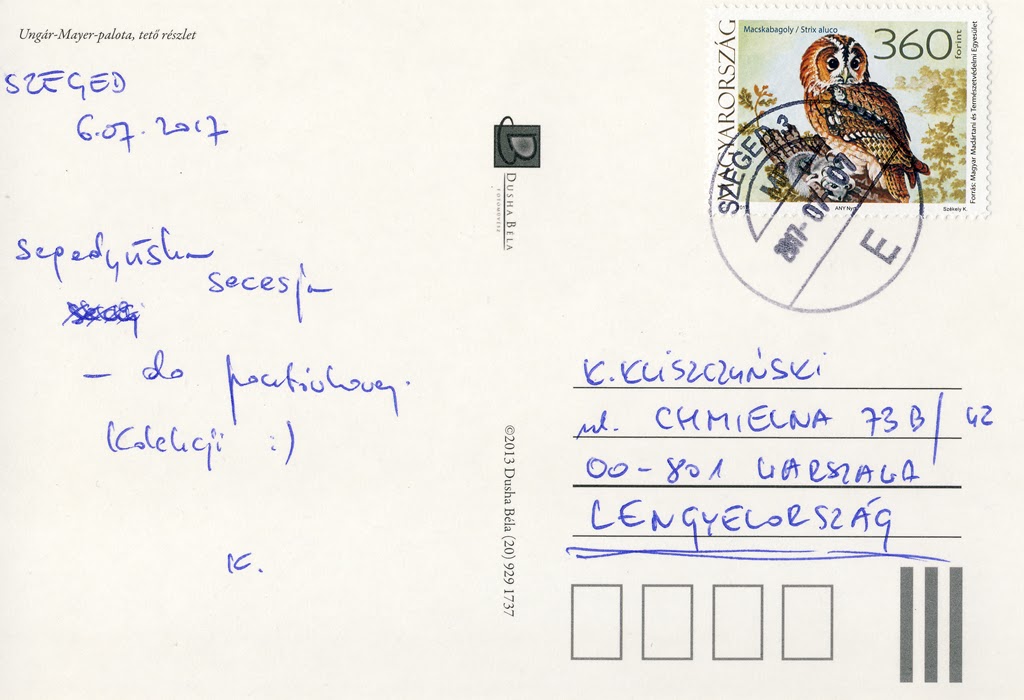 Ungár-Mayer-palota, tető részlet
SZEGED
6.07.2017
secesja
– do pocztówkowej
kolekcji :)
K.
DUSHA BÉLA
FOTÓMŰVÉSZ
©2013 Dusha Béla (20) 929 1737
Macskabagoly / Strix aluco
360 forint
MAGYARORSZÁG
Forrás: Magyar Madártani és Természetvédelmi Egyesület
ANY Nyrt.
Székely K.
SZEGED 3
E
K. KLISZCZYŃSKI
ul. CHMIELNA 73B/42
00-801 WARSZAWA
LENGYELORSZÁG